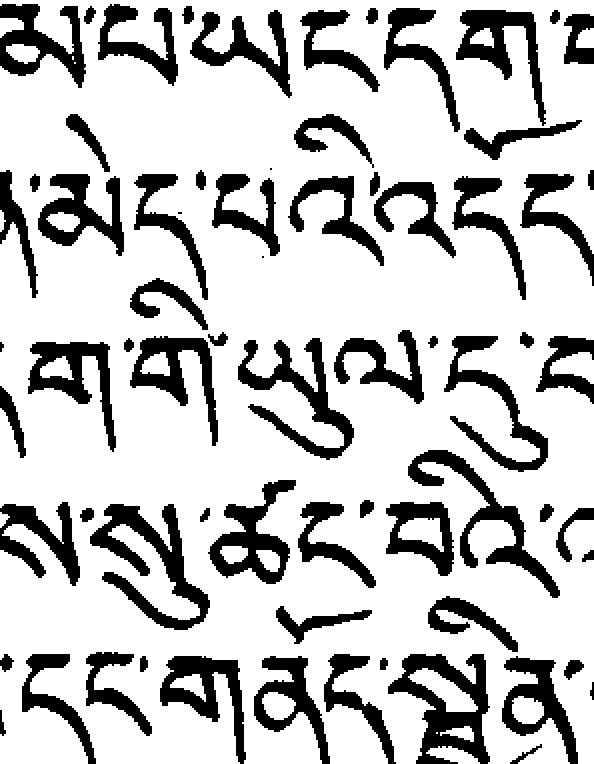 མ་པ་ཡང་དག་
ན་མེད་པའི་འདོད
དགག་གི་ཡུལ་དུ་
ས་སུ་ཚང་བའི་
་དང་གནོད་སྦྱིན་